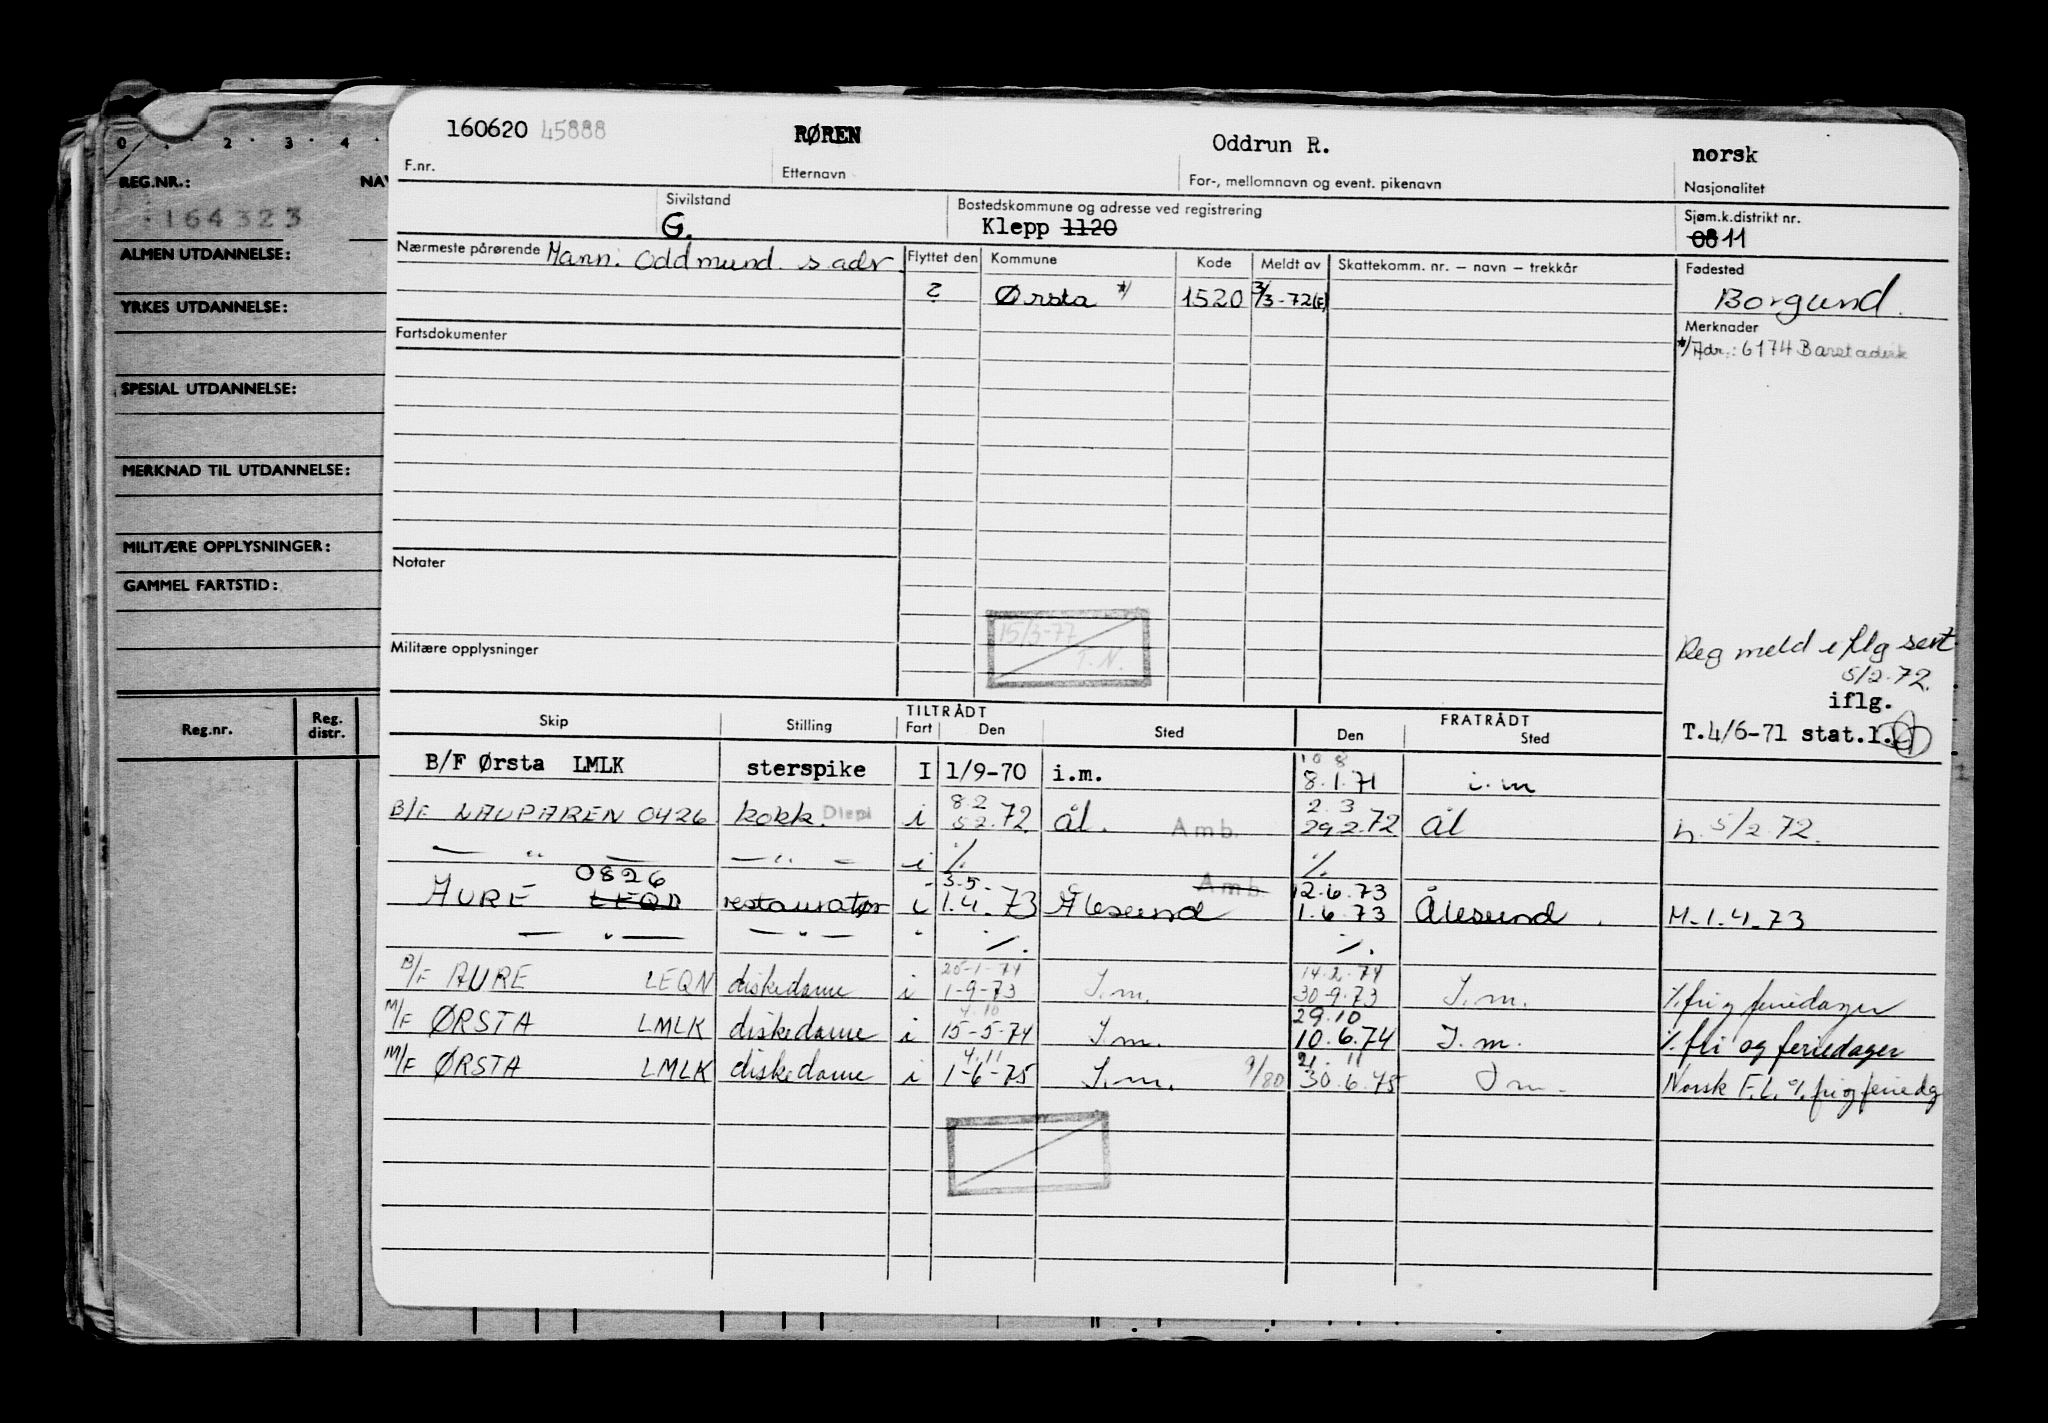 160620 45888 RØREN Oddrun R. norsk
F.nr. Etternavn For-, mellomnavn og event. pikenavn Nasjonalitet
Sivilstand Bostedskommune og adresse ved registrering Sjøm.k.distrikt nr.
G. Klepp 1120 08 11
Nærmeste pårørende Mann: Oddmund s. adr. Flyttet den Kommune Kode Meldt av Skattekomm. nr. — navn — trekkår Fødested
? Ørsta */ 1520 3/3-72(E) Borgund.
Fartsdokumenter Merknader
*/Adr.: 6174 Barstadvik
Notater
15/3-77
T.N.
Militære opplysninger
Reg meld iflg sert
5/2.72.
iflg.
T.4/6-71 stat.l.
TILTRÅDT FRATRÅDT
Skip Stilling Fart Den Sted Den Sted
B/F Ørsta LMLK sterspike I 1/9-70 i.m. 10 8 8.1.71 i.m
B/F LAUPAREN 0426 kokk. Disp i 8.2 5 2.72. ål. Amb. 2.3 29.2.72 ål h. 5/2.72.
— " — — " — i %. %.
AURE 0826 LEQN restauratør i 3.5. 1.4.73 Ålesund Amb. 12.6.73 1.6.73 Ålesund. M-1.4.73
— " — — " — " %. %.
B/F AURE LEQN diskedame i 25-1-74 1-9-73 I.m. 14.2.74 30-9.73 I.m. %fri og feriedager
M/F ØRSTA LMLK diskedame i 4.10 15-5-74 I.m. 29.10 10.6.74 I.m. %fri og feriedager
M/F ØRSTA LMLK diskedame i 4.11 1-6-75 I.m. 9/80 21.11 30.6.75 I m. Norsk F.L. % fri og feriedg
0 . 2 . 3 . 4 .
REG.NR.: NAV
164323
ALMEN UTDANNELSE:
YRKES UTDANNELSE:
SPESIAL UTDANNELSE:
MERKNAD TIL UTDANNELSE:
MILITÆRE OPPLYSNINGER:
GAMMEL FARTSTID:
Reg.nr. Reg. distr.